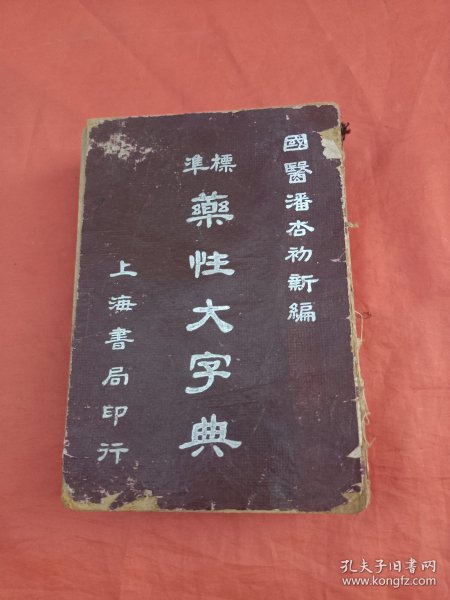 國醫潘杏初新編
標準
藥性大字典
上海書局印行
孔夫子旧书网
www.kongfz.com